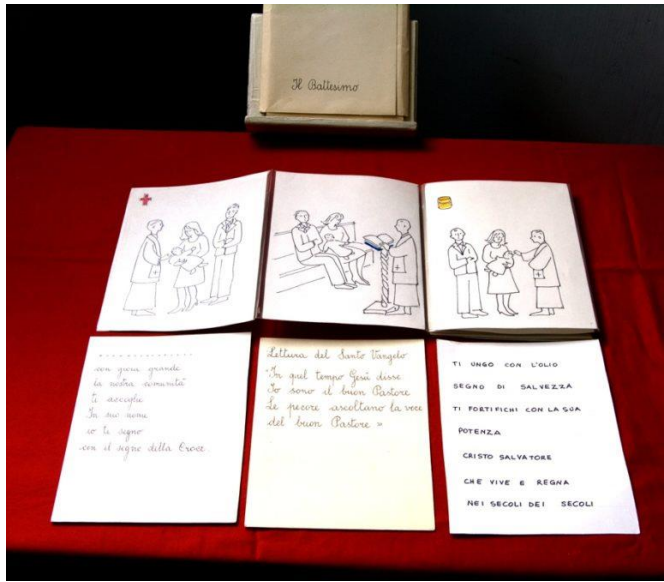 Il Battesimo
..................
con gioia grande
la nostra comunità
ti accoglie
In suo nome
io ti segno
con il segno della Croce.
Lettura del Santo Vangelo
"In quel tempo Gesù disse
Io sono il buon Pastore
Le pecore ascoltano la voce
del buon Pastore »
TI UNGO CON L'OLIO
SEGNO DI SALVEZZA
TI FORTIFICHI CON LA SUA
POTENZA
CRISTO SALVATORE
CHE VIVE E REGNA
NEI SECOLI DEI SECOLI